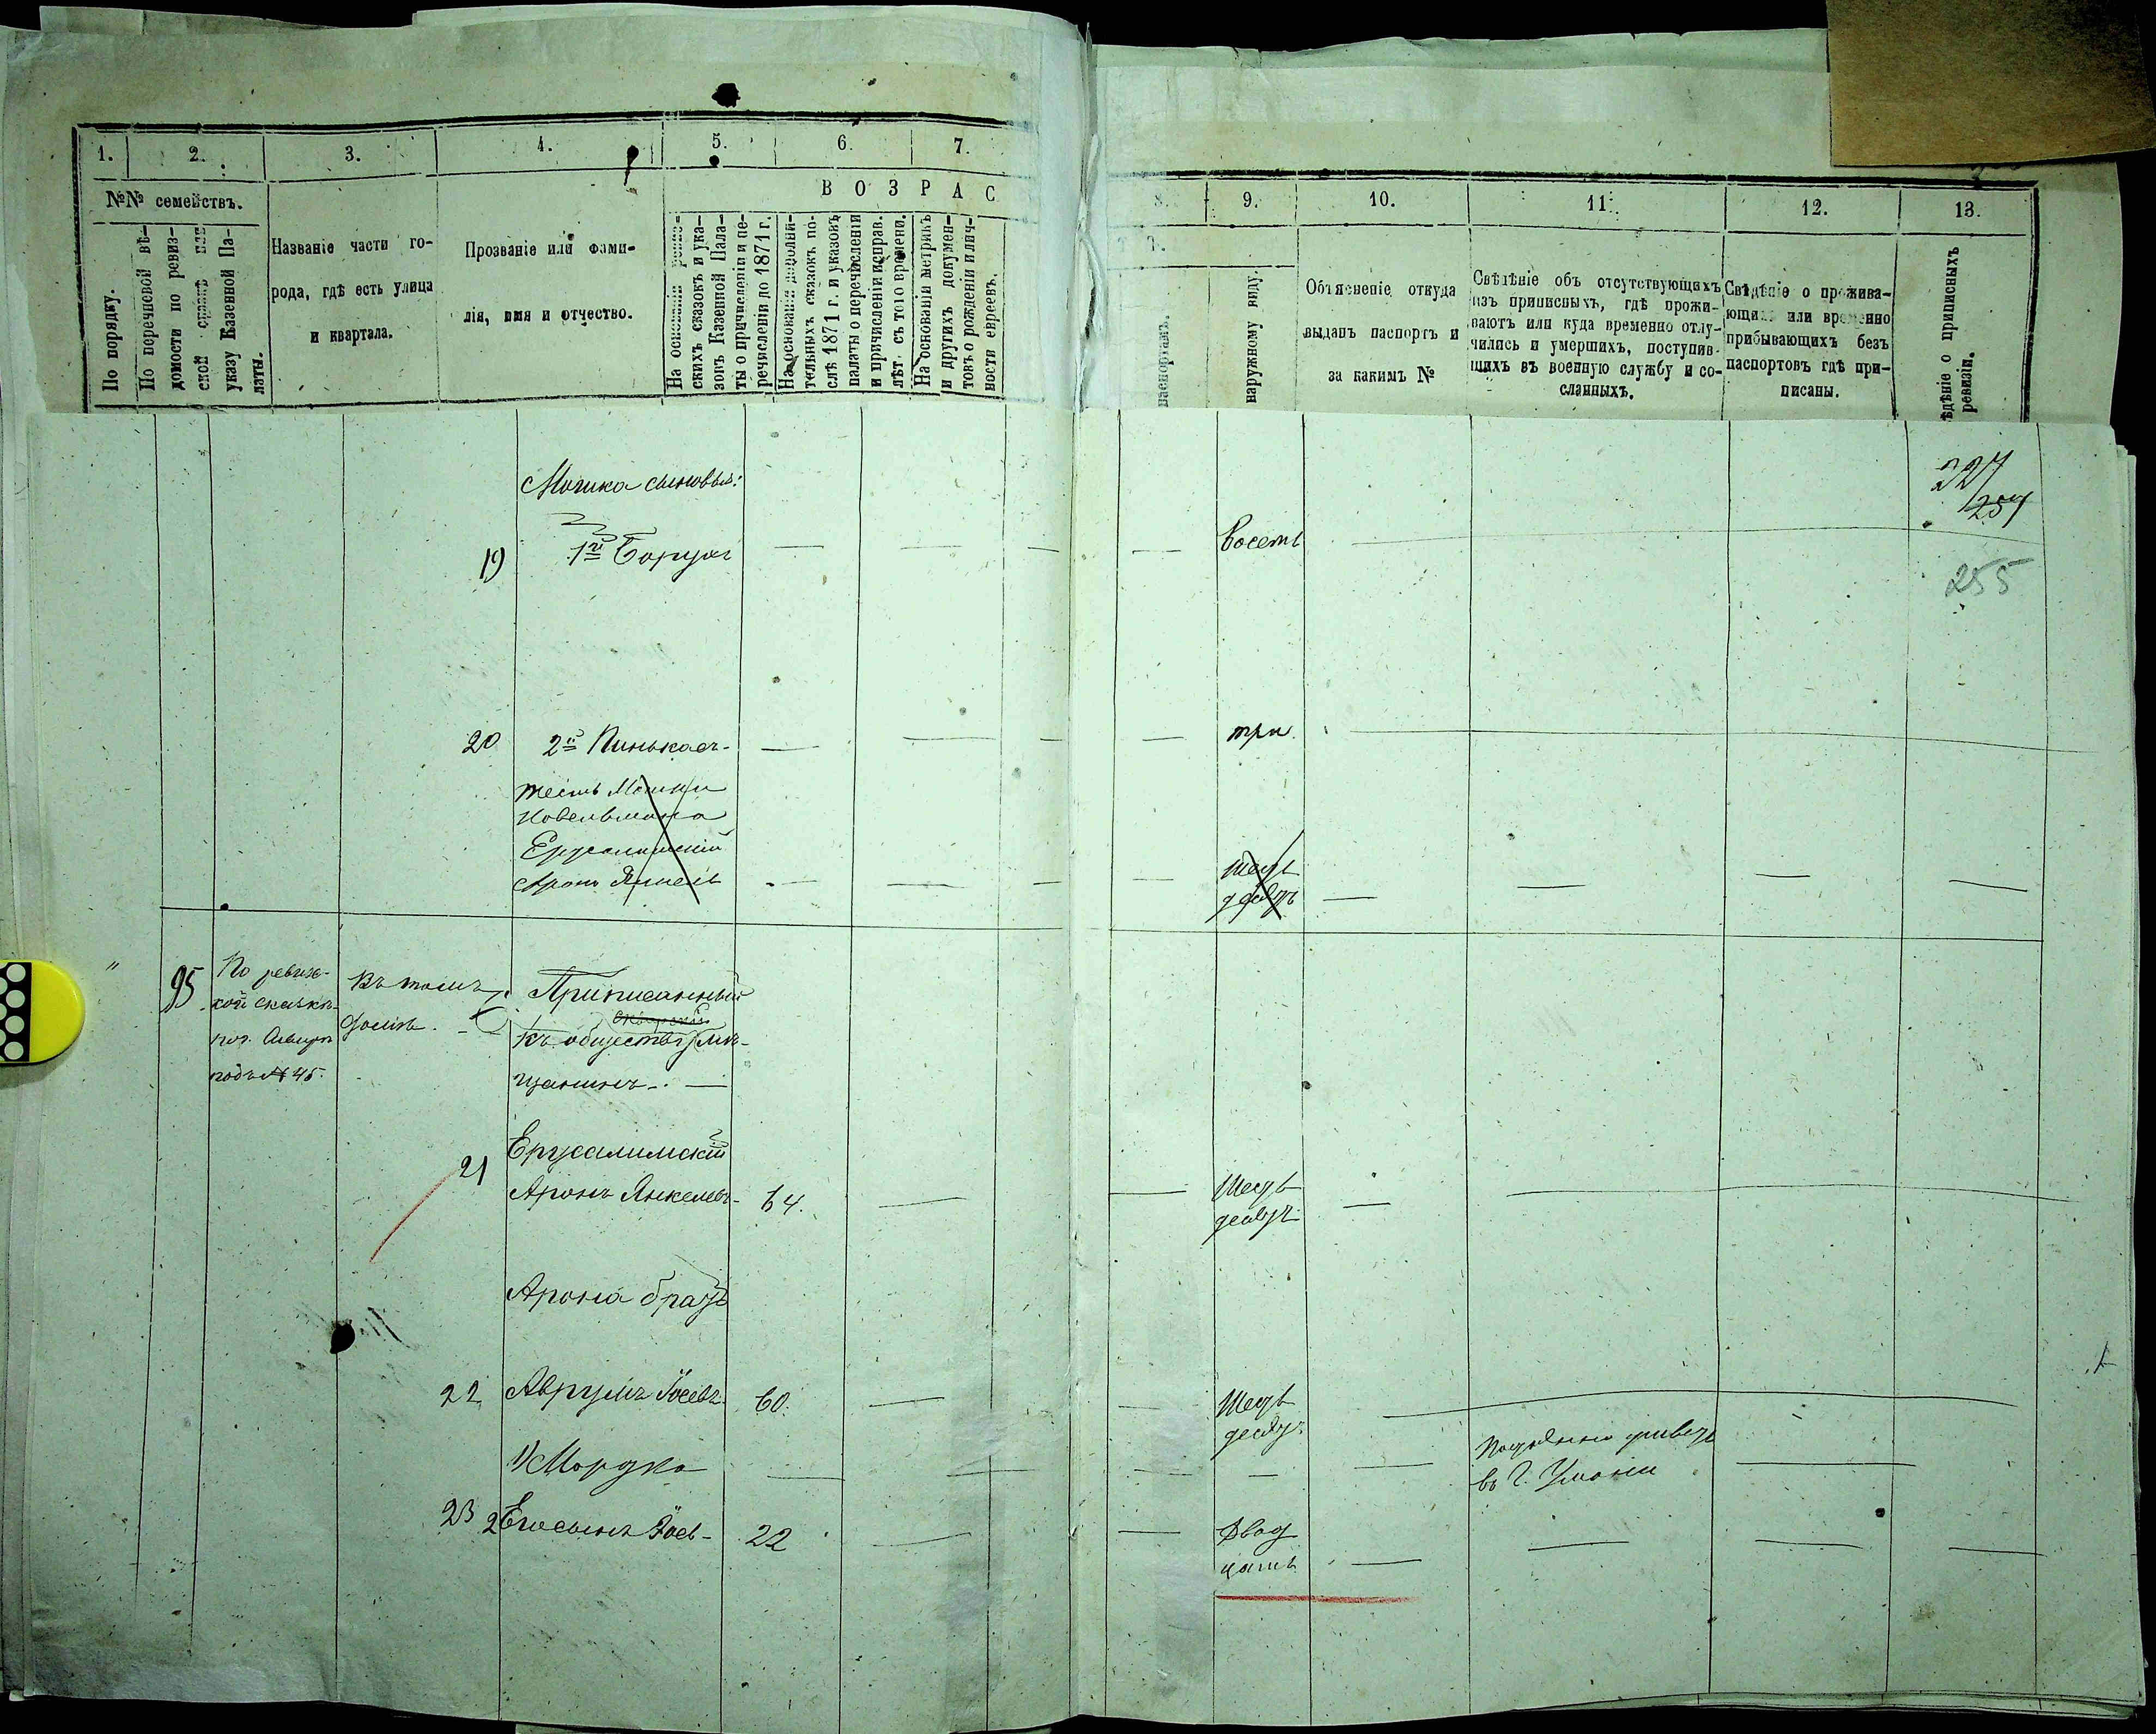 1.
2.
3.
4.
5.
6.
7.
№№ семействъ.
По порядку.
По перечневой вѣ-
домости по ревиз-
ской сказкѣ или
указу Казенной Па-
латы.
Названіе части го-
рода, гдѣ есть улица
и квартала.
Прозваніе или фами-
лія, имя и отчество.
ВОЗРАС
На основаніи ревиз-
скихъ сказокъ и ука-
зовъ Казенной Пала-
ты о причисленіи и пе-
речисленіи до 1871 г.
На основаніи дополни-
тельныхъ сказокъ по-
слѣ 1871 г. и указовъ
палаты о перечисленіи
и причисленіи исправ.
лѣт. съ того времени.
На основаніи метрикъ
и другихъ докумен-
товъ о рожденіи и лич-
ности евреевъ.
8.
9.
10.
11.
12.
13.
Т Ъ.
паспортамъ.
наружному виду.
Объясненіе откуда
выданъ паспортъ и
за какимъ №
Свѣдѣніе объ отсутствующихъ
изъ приписныхъ, гдѣ прожи-
ваютъ или куда временно отлу-
чились и умершихъ, поступив-
шихъ въ военную службу и со-
сланныхъ.
Свѣдѣніе о прожива-
ющихъ или временно
прибывающихъ безъ
паспортовъ гдѣ при-
писаны.
ѣдѣніе о приписныхъ
ревизіи.
Мошка сыновья:
19 1й Борухъ — — — — Восемь
227
257
255
20 2й Пинькасъ — — — три
тесть Мошки
Ерусалимскій
Аронъ Янкель — — — — — — —
Шесть
десятъ
95
По ревизс-
кой сказкѣ
подъ № 45.
Въ томъ
домѣ.
Приписанный
сквирскій
къ обществу мѣ-
щанинъ
Ерусалимскій
21 Аронъ Янкелевъ 64. — — Шесть
десятъ —
Арона братъ
22 Аврумъ Іосевъ 60. — — Шесть
десятъ
1) Мордко — — — — —
живетъ
въ г. Умани
23 2 Іось- 22 — — Двад
цать — — — —